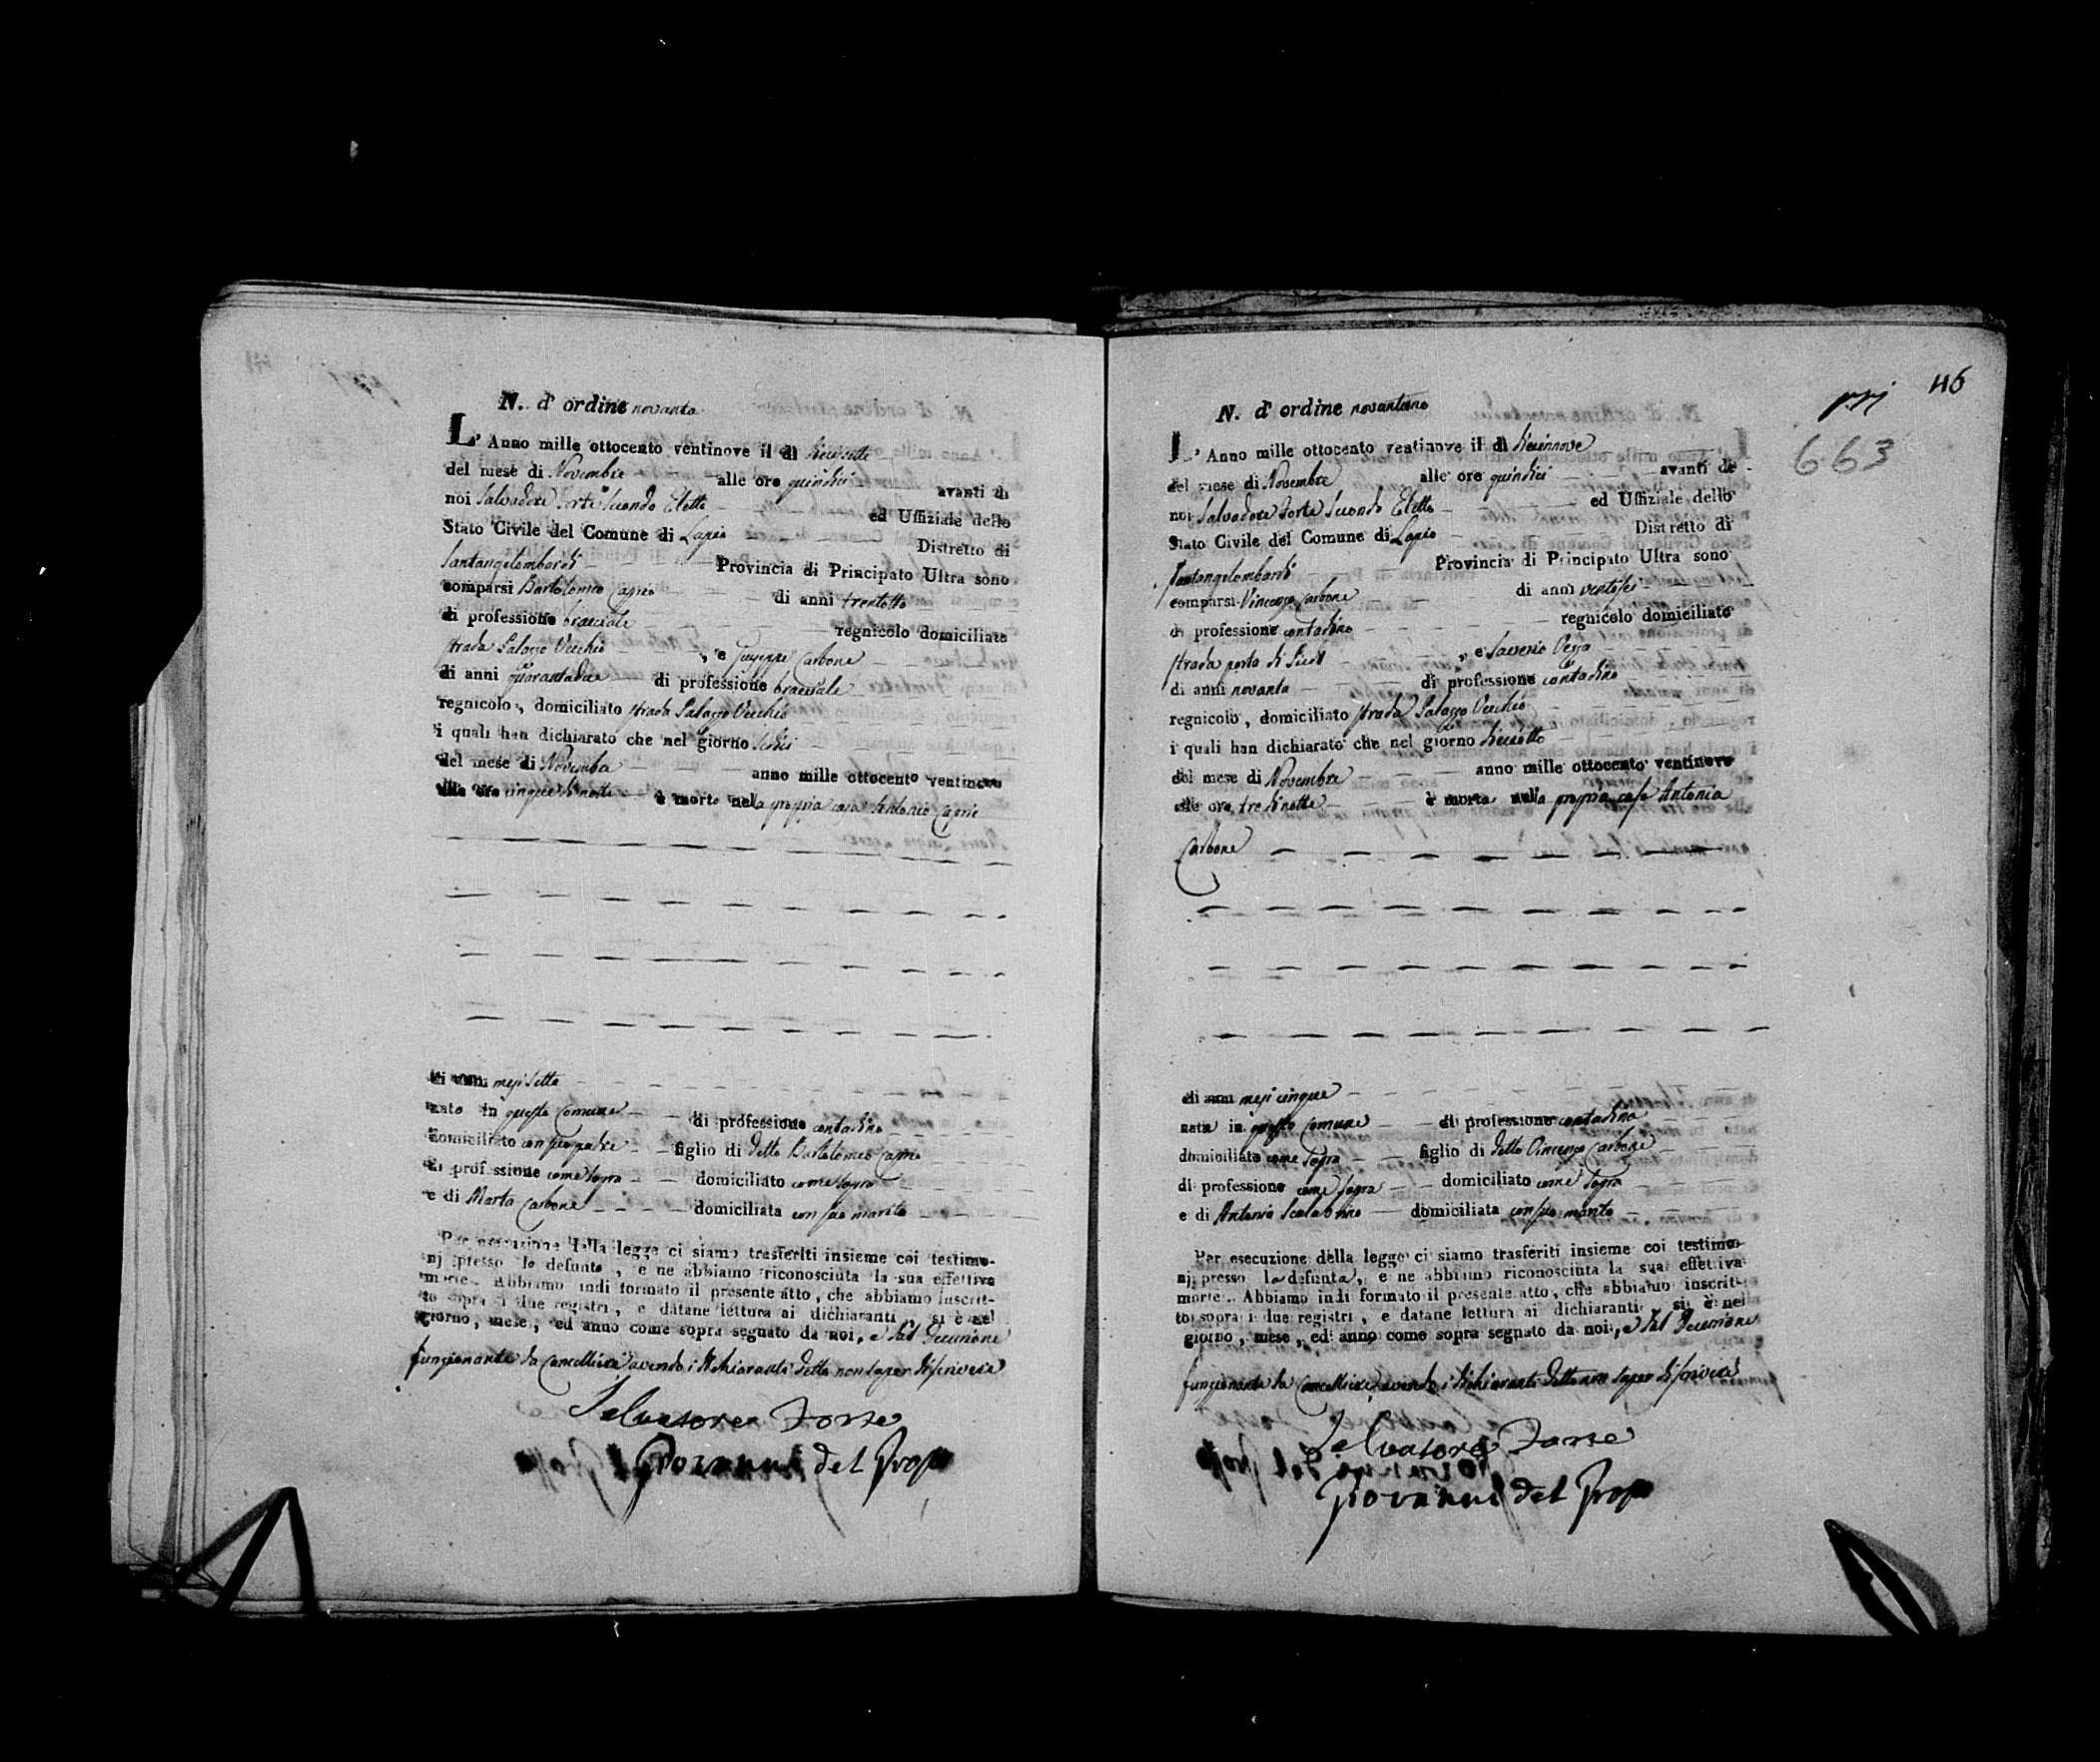 N. d' ordine novanta
L' Anno mille ottocento ventinove il di diecisette
del mese di Novembre alle ore quindici avanti di
noi Salvadore Forte Secondo Eletto ed Uffiziale dello
Stato Civile del Comune di Lapio Distretto di
Santangelombardi Provincia di Principato Ultra sono
comparsi Bartolomeo Caprio di anni trentotto
di professione bracciale regnicolo domiciliato
strada Palazzo Vecchio , e Giuseppe Carbone
di anni quarantadue di professione bracciale
regnicolo , domiciliato strada Palazzo Vecchio
i quali han dichiarato che nel giorno sedici
del mese di Novembre anno mille ottocento ventinove
alle ore cinque di notte è morto nella propria casa Antonio Caprio
di anni mesi sette
nato in questo Comune di professione contadino
domiciliato con suo padre figlio di detto Bartolomeo Caprio
di professione come sopra domiciliato come sopra
e di Marta Carbone domiciliata con suo marito
Per esecuzione della legge ci siamo trasferiti insieme coi testimo-
nj presso lo defunto , e ne abbiamo riconosciuta la sua effettiva
morte . Abbiamo indi formato il presente atto , che abbiamo inscrit-
to sopra i due registri , e datane lettura ai dichiaranti , si è nel
giorno , mese , ed anno come sopra segnato da noi , e dal Decurione
funzionante da Cancelliere avendo i dichiaranti detto non saper di scrivere
Salvatore Forte
Giovanni del Grosso
46
663
N. d' ordine novantuno
L' Anno mille ottocento ventinove il dì diecinnove
del mese di Novembre alle ore quindici avanti di
noi Salvadore Forte Secondo Eletto ed Uffiziale dello
Stato Civile del Comune di Lapio Distretto di
Santangelombardi Provincia di Principato Ultra sono
comparsi Vincenzo Carbone di anni ventisei
di professione contadino regnicolo domiciliato
strada porta di , e Saverio
di anni novanta di professione contadino
regnicolo , domiciliato strada Palazzo Vecchio
i quali han dichiarato che nel giorno dieciotto
del mese di Novembre anno mille ottocento ventinove
alle ore tre di notte è morta nella propria casa Antonia
Carbone
di anni mesi cinque
nata in questo Comune di professione contadina
domiciliata come sopra figlio di detto Vincenzo Carbone
di professione come sopra domiciliato come sopra
e di Antonia Scalabrino domiciliata con suo marito
Per esecuzione della legge ci siamo trasferiti insieme coi testimo-
nj presso la defunta , e ne abbiamo riconosciuta la sua effettiva
morte . Abbiamo indi formato il presente atto , che abbiamo inscrit-
to sopra i due registri , e datane lettura ai dichiaranti , si è nel
giorno , mese , ed anno come sopra segnato da noi , e dal Decurione
funzionante da Cancelliere avendo i dichiaranti detto non saper di scrivere
Salvatore Forte
Giovanni del Grosso